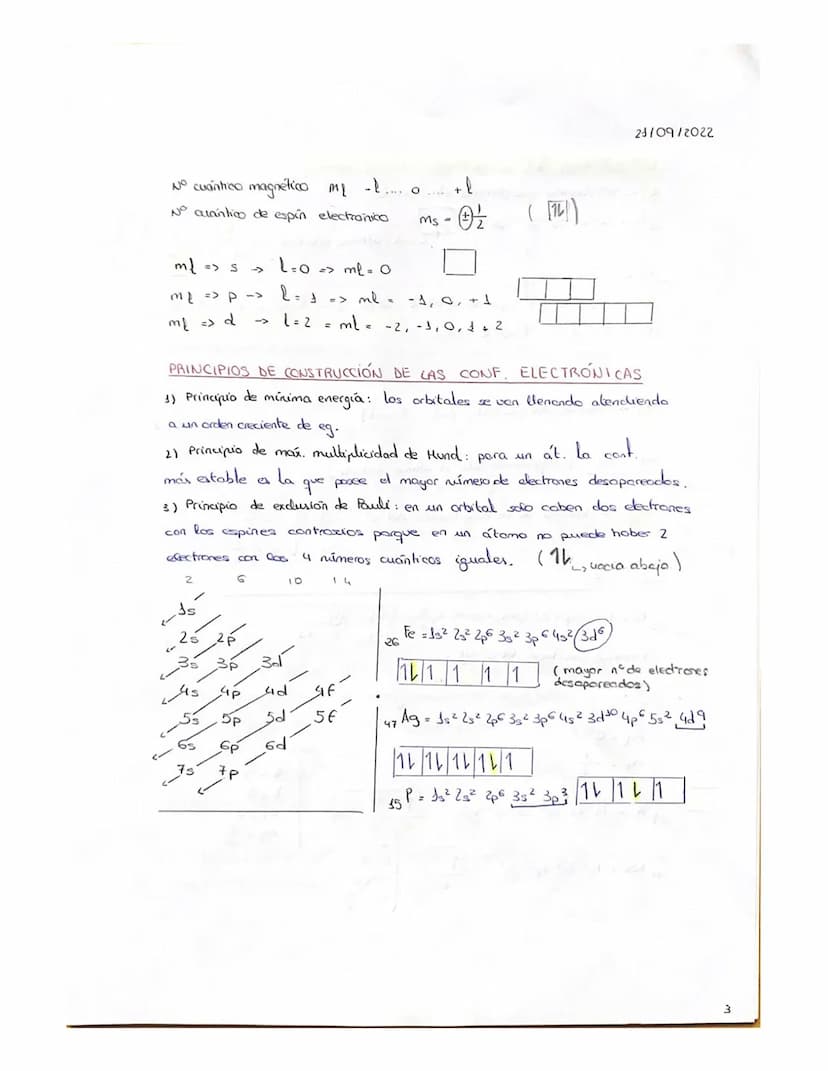 21/09/2022
Nº cuántico magnético ml -l .... 0 .... +l
Nº cuántico de espín electrónico ms = ± 1/2 (1L)
ml => s -> l=0 => ml = 0
ml => p -> l = 1 => ml = -1, 0, +1
ml => d -> l=2 = ml = -2, -1, 0, 1 + 2
PRINCIPIOS DE CONSTRUCCIÓN DE LAS CONF. ELECTRÓNICAS
1) Principio de mínima energía: los orbitales se van llenando atendiendo
a un orden creciente de eg.
2) Principio de máx. multiplicidad de Hund: para un át. la conf.
más estable es la que posee el mayor número de electrones desapareados.
3) Principio de exclusión de Pauli: en un orbital solo caben dos electrones
con los espines contrarios porque en un átomo no puede haber 2
electrones con los 4 números cuánticos iguales. (1L hacia abajo)
2 6 10 14
1s
2s 2p
3s 3p 3d
4s 4p 4d 4f
5s 5p 5d 5f
6s 6p 6d
7s 7p
26 Fe = 1s² 2s² 2p⁶ 3s² 3p⁶ 4s² 3d⁶
1L 1 1 1 1 (mayor nº de electrones
desapareados)
47 Ag = 1s² 2s² 2p⁶ 3s² 3p⁶ 4s² 3d¹⁰ 4p⁶ 5s² 4d⁹
1L 1L 1L 1L 1
15 P = 1s² 2s² 2p⁶ 3s² 3p³ 1L 1 L 1
3